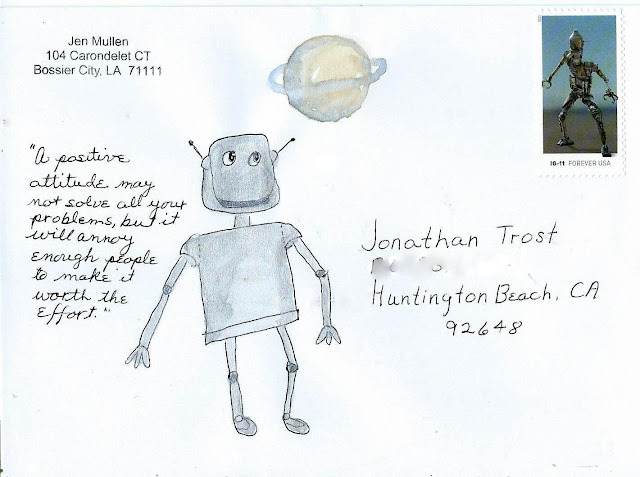 Jen Mullen
104 Carondelet CT
Bossier City, LA 71111
IG-11 FOREVER USA
"A positive
attitude may
not solve all your
problems, but it
will annoy
enough people
to make it
worth the
effort."
Jonathan Trost
Huntington Beach, CA
92648